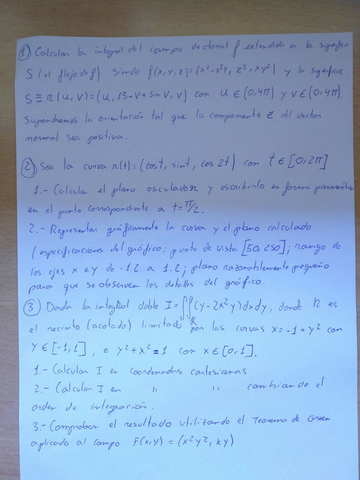 ① Calcular la integral del campo vectorial f extendido a la superficie
S (el flujo de f) siendo f(x,y,z)=(x²-x²y, z²+xy²) y la superficie
S≡r(u,v)=(u, 15-v+sinv, v) con u∈(0,4π) y v∈(0,4π).
Supondremos la orientación tal que la componente z del vector
normal sea positiva.
② Sea la curva r(t):(cost, sint, cos2t) con t∈[0,2π]
1.- Calcular el plano osculador y escribirlo en forma paramétrica
en el punto correspondiente a t=π/2.
2.- Representar gráficamente la curva y el plano calculado
(especificaciones del gráfico: punto de vista [50,250]; rango de
los ejes x e y de -1.2 a 1.2; plano razonablemente pequeño
para que se observen los detalles del gráfico.
③ Dada la integral doble I=∬R(y-2x²y)dxdy, donde R es
el recinto (acotado) limitado por las curvas x=-1+y² con
y∈[-1,1], e y²+x²=1 con x∈[0,1].
1.- Calcular I en coordenadas cartesianas
2.- Calcular I en " " cambiando el
orden de integración.
3.- Comprobar el resultado utilizando el Teorema de Green
aplicado al campo F(x,y)=(x²y², xy)